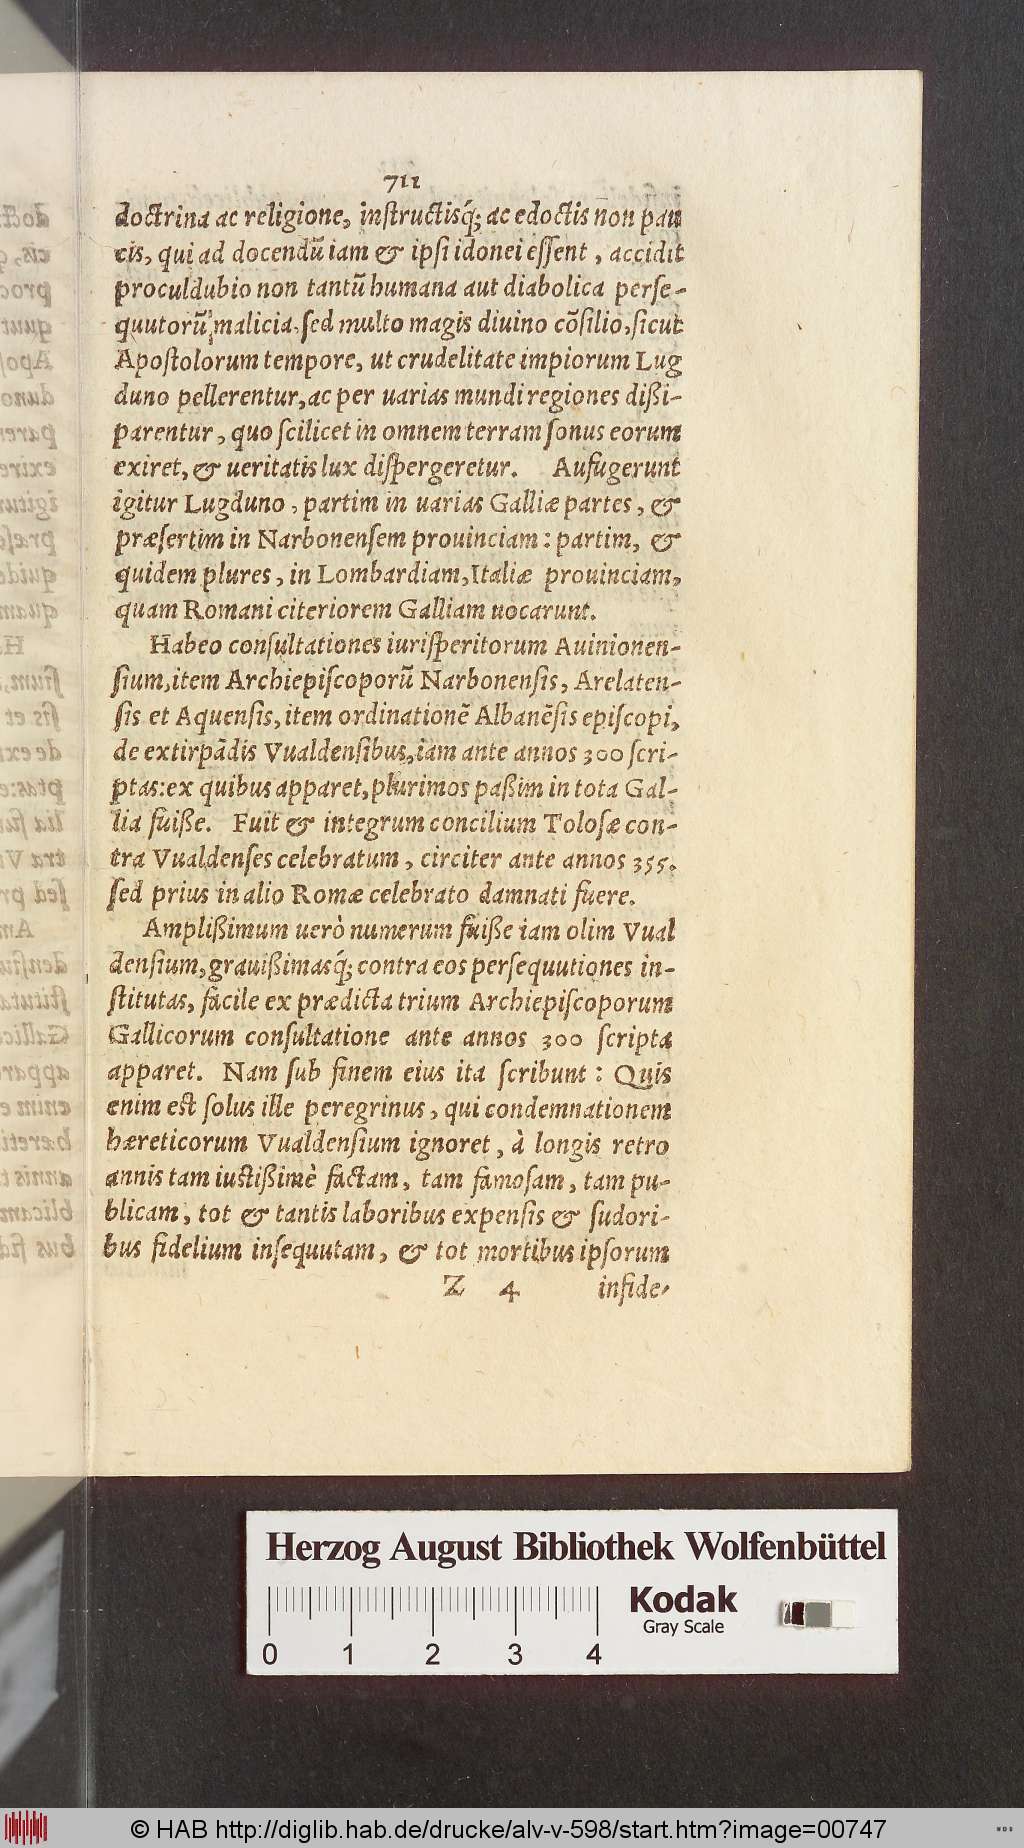 711
doctrina ac religione, inſtructisq́; ac edoctis non pau
cis, qui ad docendũ iam & ipſi idonei eſſent, accidit
proculdubio non tantũ humana aut diabolica perſe-
quutorũ malicia, ſed multo magis diuino cõſilio, ſicut
Apoſtolorum tempore, ut crudelitate impiorum Lug
duno pellerentur, ac per uarias mundi regiones dißi-
parentur, quo ſcilicet in omnem terram ſonus eorum
exiret, & ueritatis lux diſpergeretur. Aufugerunt
igitur Lugduno, partim in uarias Galliæ partes, &
præſertim in Narbonenſem prouinciam: partim, &
quidem plures, in Lombardiam, Italiæ prouinciam,
quam Romani citeriorem Galliam uocarunt.
Habeo conſultationes iuriſperitorum Auinionen-
ſium, item Archiepiſcoporũ Narbonenſis, Arelaten-
ſis et Aquenſis, item ordinationẽ Albanẽſis epiſcopi,
de extirpãdis Vualdenſibus, iam ante annos 300 ſcri-
ptas: ex quibus apparet, plurimos paßim in tota Gal-
lia fuiße. Fuit & integrum concilium Toloſæ con-
tra Vualdenſes celebratum, circiter ante annos 355.
ſed prius in alio Romæ celebrato damnati fuere.
Amplißimum uerò numerum fuiße iam olim Vual
denſium, grauißimasq́; contra eos perſequutiones in-
ſtitutas, facile ex prædicta trium Archiepiſcoporum
Gallicorum conſultatione ante annos 300 ſcripta
apparet. Nam ſub finem eius ita ſcribunt: Quis
enim eſt ſolus ille peregrinus, qui condemnationem
hæreticorum Vualdenſium ignoret, à longis retro
annis tam iuſtißimè factam, tam famoſam, tam pu-
blicam, tot & tantis laboribus expenſis & ſudori-
bus fidelium inſequutam, & tot mortibus ipſorum
Z 4 infide-
Herzog August Bibliothek Wolfenbüttel
Kodak
Gray Scale
0 1 2 3 4
© HAB http://diglib.hab.de/drucke/alv-v-598/start.htm?image=00747